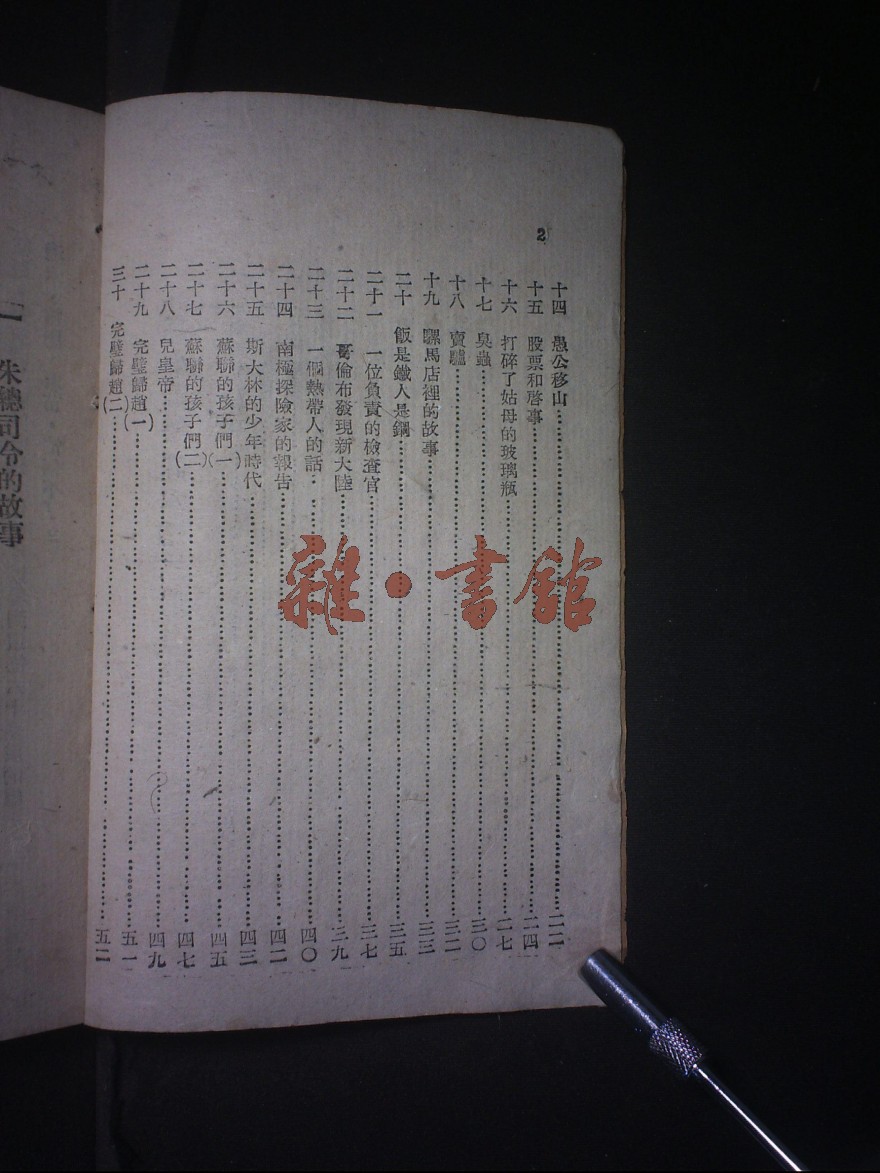 2
十四 愚公移山……二二
十五 股票和啓事……二四
十六 打碎了姑母的玻璃瓶……二七
十七 臭蟲……三〇
十八 賣驢……三二
十九 騾馬店裡的故事……三三
二十 飯是鐵人是鋼……三五
二十一 一位負責的檢查官……三七
二十二 哥倫布發現新大陸……三九
二十三 一個熱帶人的話……四〇
二十四 南極探險家的報告……四二
二十五 斯大林的少年時代……四三
二十六 蘇聯的孩子們(一)……四五
二十七 蘇聯的孩子們(二)……四七
二十八 兒皇帝……四九
二十九 完璧歸趙(一)……五一
三十 完璧歸趙(二)……五二
一 朱總司令的故事
雜·書館